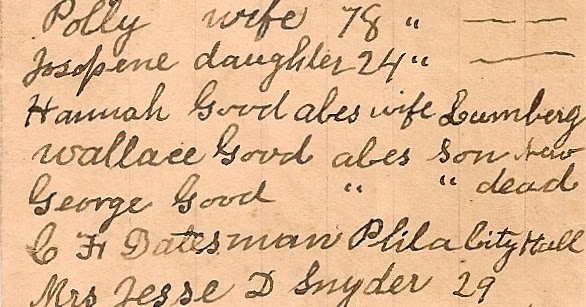 Polly wife 78 " — —
Josopene daughter 24 " —
Hannah Good abes wife Lumberg
Wallace Good abes son New
George Good " " dead
C H Datesman Phila City Hall
Mrs Jesse D Snyder 29